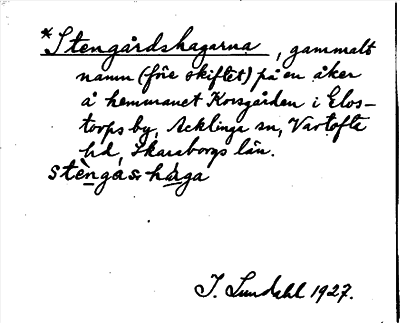 *Stengårdshagarna, gammalt
namn (före skiftet) på en åker
å hemmanet Korsgården i Elos-
torps by, Acklinga sn, Vartofta
hd, Skaraborgs län.
stèngas haga
I. Lundahl 1927.